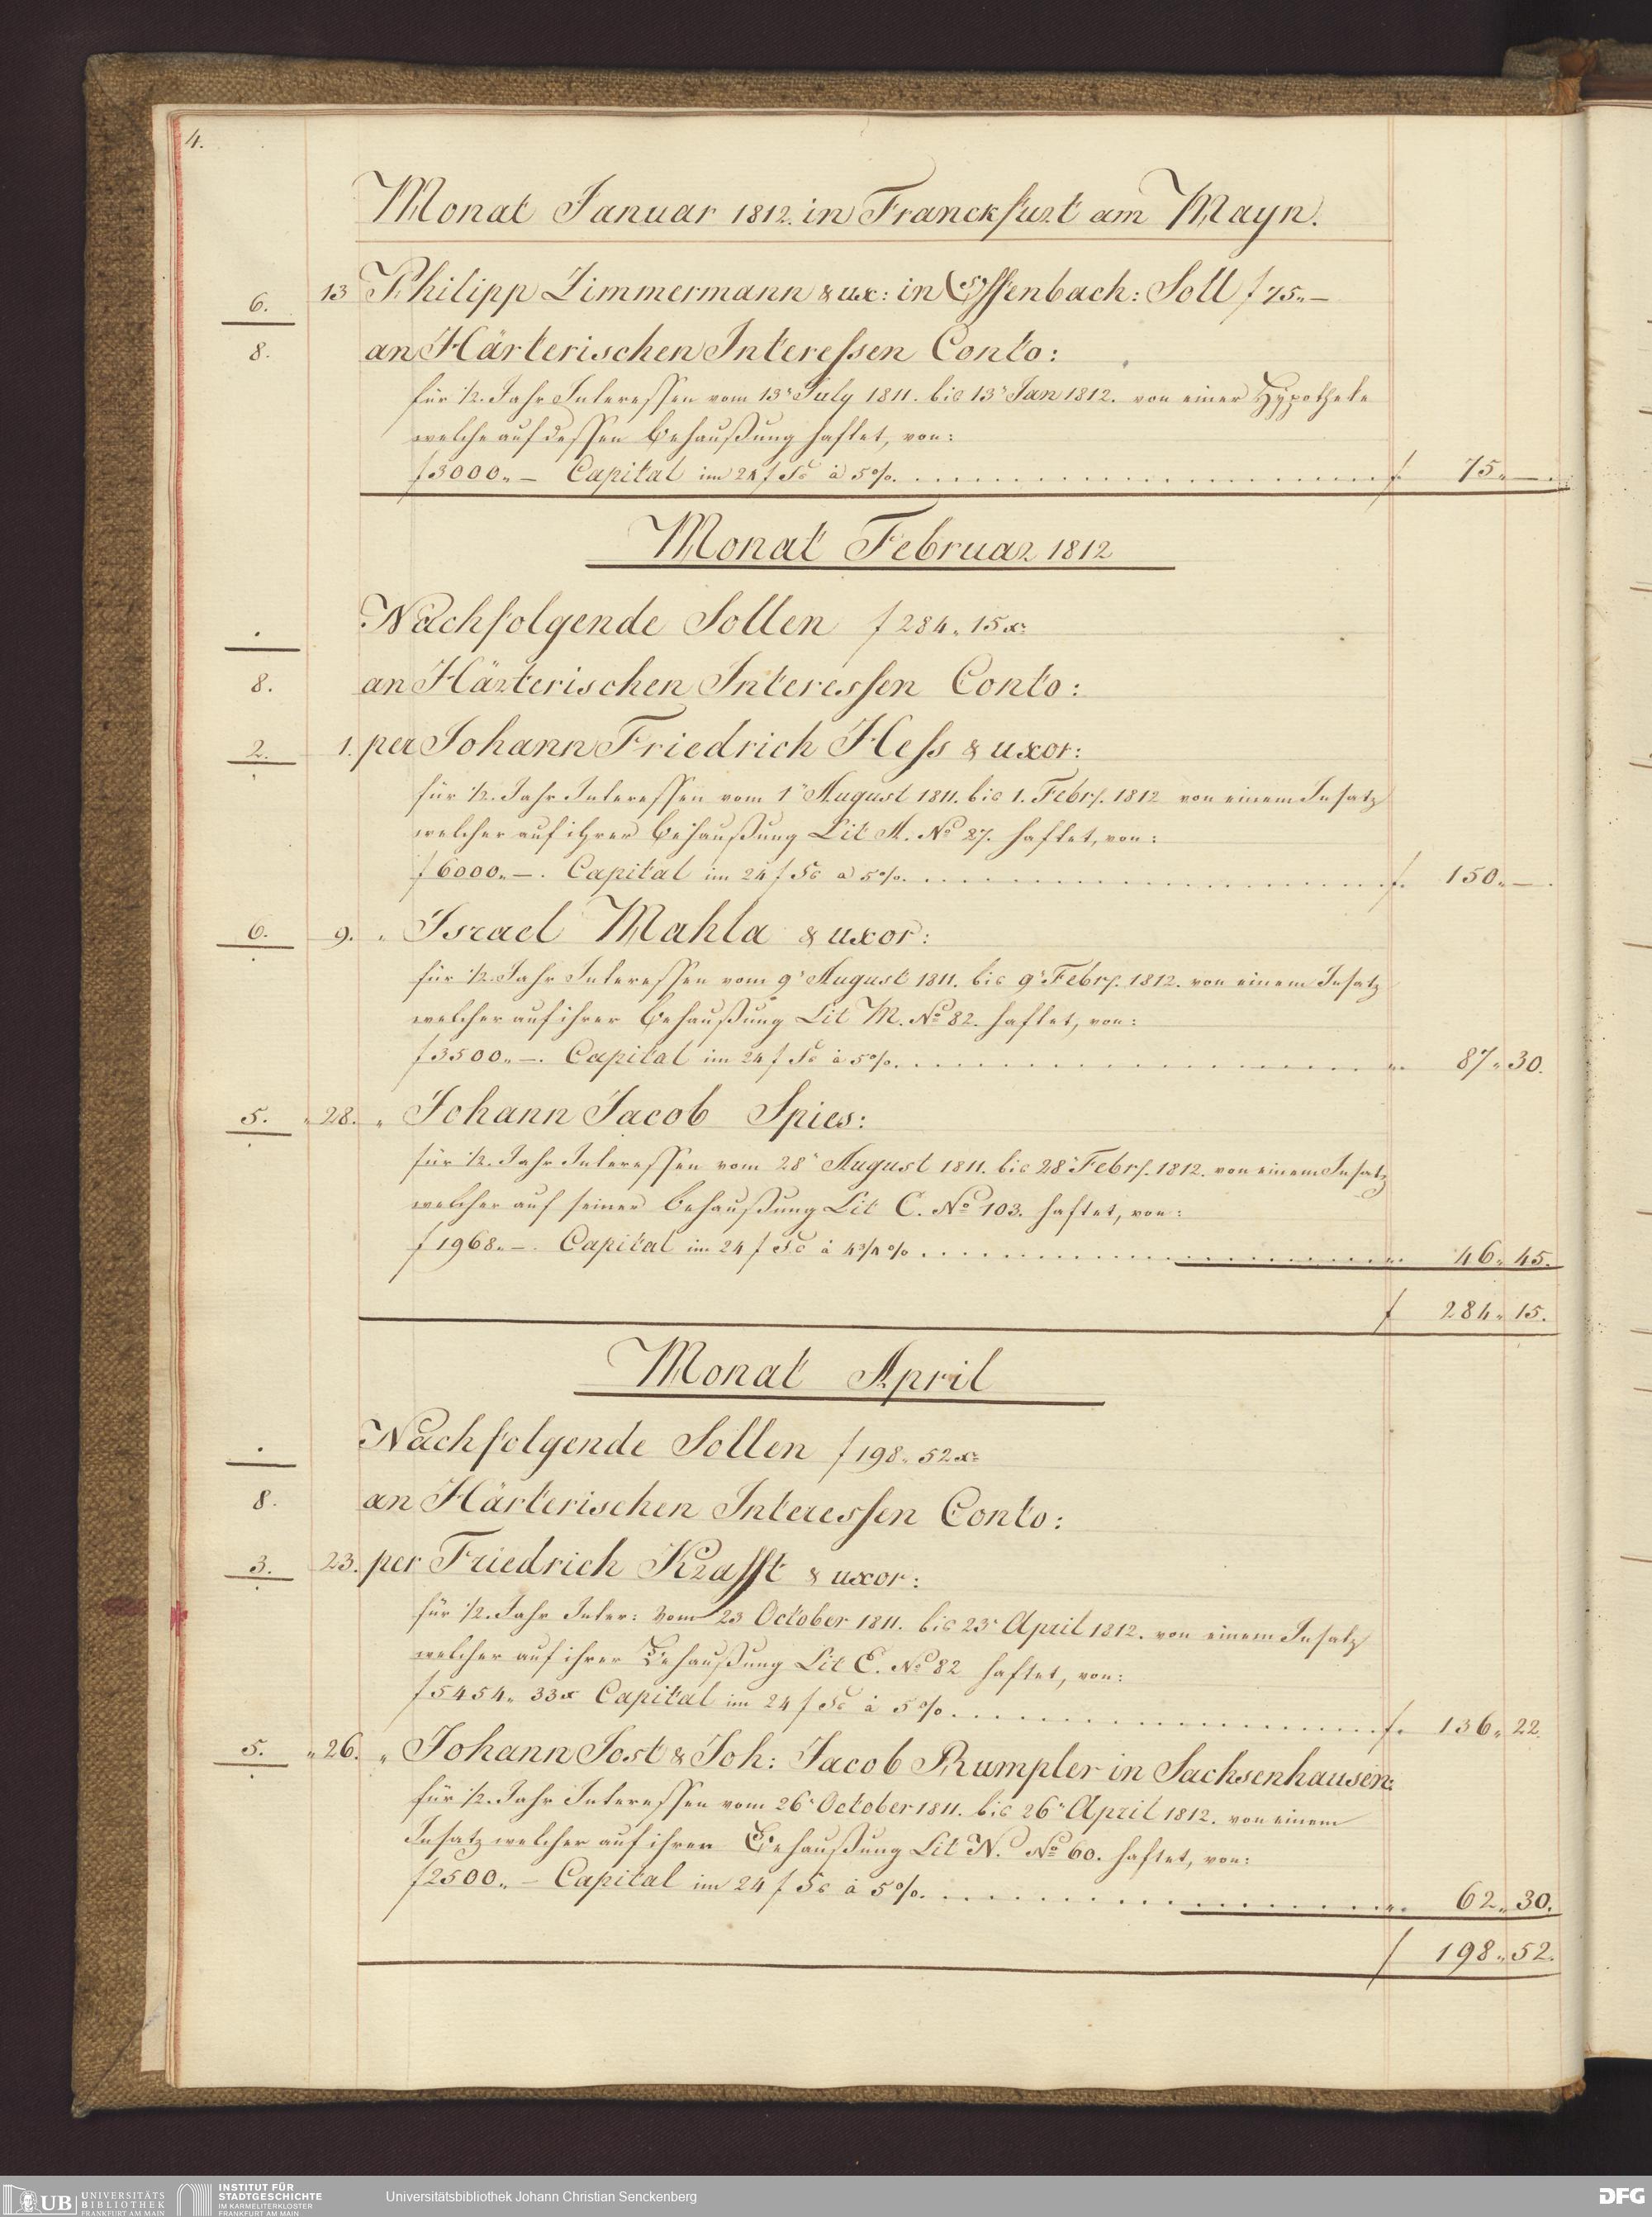 4.
Monat Januar 1812. in Franckfurt am Mayn.
6. 13 Philipp Zimmermann & ux: in Offenbach: Soll f 75.„—
8. an Härterischen Interessen Conto:
für 1/2. Jahr Interessen vom 13r July 1811. bis 13r Jan 1812. von einer Hypotheke
welche auf dessen Behaußung haftet, von:
f 3000.„— Capital im 24 f Fs à 5%. f. 75.„—.
Monat Februar 1812
. Nachfolgende Sollen f 284.„ 15 x:
8. an Härterischen Interessen Conto:
2. 1. per Johann Friedrich Hess & uxor:
für 1/2. Jahr Interessen vom 1r August 1811. bis 1. Febr. 1812 von einem Insatz
welcher auf ihrer Behaußung Lit A. No 87. haftet, von:
f 6000.„—. Capital im 24 f Fs à 5%. f. 150.„—.
6. 9. „ Israel Mahla & uxor:
für 1/2. Jahr Interessen vom 9r August 1811. bis 9r Febr. 1812. von einem Insatz
welcher auf ihrer Behaußung Lit M. No 82. haftet, von:
f 3500.„—. Capital im 24 f Fs à 5%. „. 87.„ 30.
5. „ 28. „ Johann Jacob Spies:
für 1/2. Jahr Interessen vom 28r August 1811. bis 28r Febr. 1812. von einem Insatz
welcher auf seiner Behaußung Lit C. No 103. haftet, von:
f 1968.„—. Capital im 24 f Fs à 4 3/4 % „. 46.„ 45.
f 284.„ 15.
Monat April
. Nachfolgende Sollen f 198.„ 52 x:
8. an Härterischen Interessen Conto:
3. 23. per Friedrich Krafft & uxor:
für 1/2. Jahr Inter: vom 23 October 1811. bis 23r April 1812. von einem Insatz
welcher auf ihrer Behaußung Lit E. No 82 haftet, von:
f 5454.„ 33 x Capital im 24 f Fs à 5%. f. 136.„ 22.
5. „ 26. „ Johann Jost & Joh: Jacob Rumpler in Sachsenhausen:
für 1/2. Jahr Interessen vom 26r October 1811. bis 26r April 1812. von einem
Insatz welcher auf ihrer Behaußung Lit N. No 60. haftet, von:
f 2500.„— Capital im 24 f Fs à 5%. „. 62.„ 30.
f 198.„ 52.
UB UNIVERSITÄTS BIBLIOTHEK FRANKFURT AM MAIN
INSTITUT FÜR STADTGESCHICHTE IM KARMELITERKLOSTER FRANKFURT AM MAIN
Universitätsbibliothek Johann Christian Senckenberg
DFG